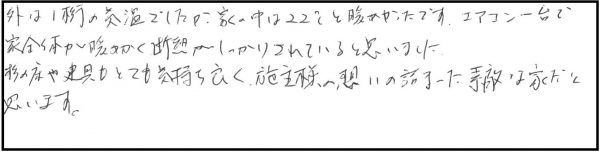 外は1桁の気温でしたが家の中は22℃と暖かかったです。エアコン一台で
家全体が暖かく断熱がしっかりされていると思いました。
杉の床や建具もとても気持ち良く、施主様の想いの詰まった素敵な家だと
思います。